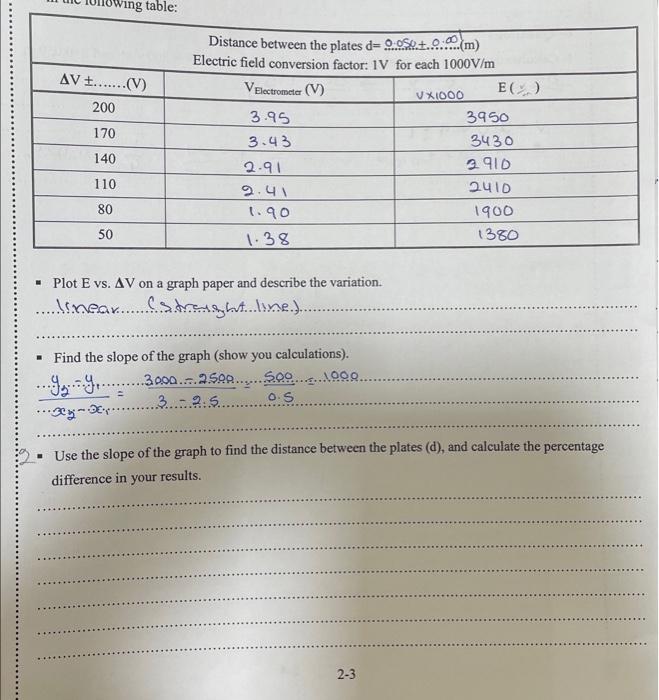 following table:
Distance between the plates d= 0.050 ± 0.001 (m)
Electric field conversion factor: 1V for each 1000V/m
ΔV ±.......(V) VElectrometer (V) V×1000 E ( )
200 3.95 3950
170 3.43 3430
140 2.91 2910
110 2.41 2410
80 1.90 1900
50 1.38 1380
▪ Plot E vs. ΔV on a graph paper and describe the variation.
linear (straight line)
▪ Find the slope of the graph (show you calculations).
y₂-y₁ / x₂-x₁ = 3000 - 2500 / 3 - 2.5 = 500 / 0.5 = 1000
2 ▪ Use the slope of the graph to find the distance between the plates (d), and calculate the percentage
difference in your results.
2-3